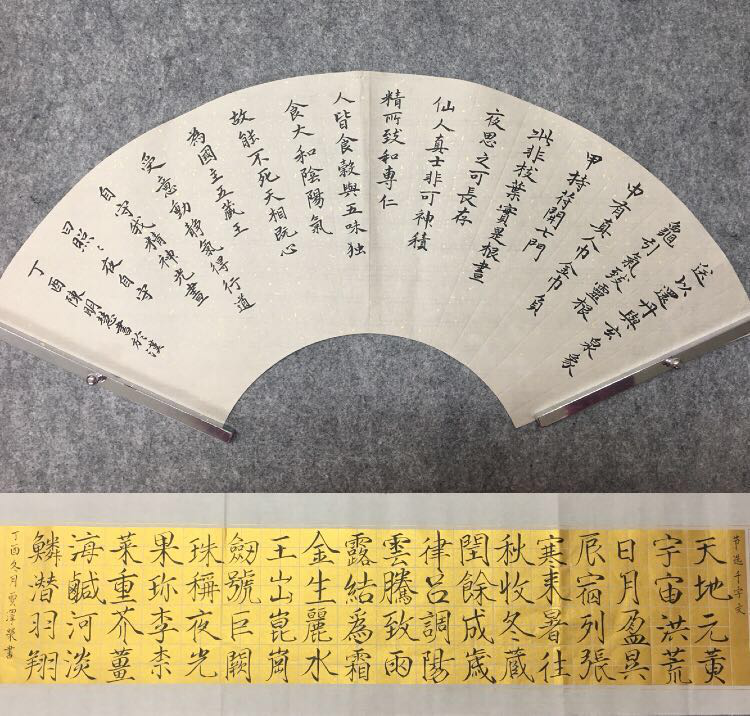 送以還丹與玄泉象
龜引氣致靈根
中有真人巾金巾負
甲持符開七門
此非枝葉實是根晝
夜思之可長存
仙人真士非可神積
精所致和專仁
人皆食穀與五味独
食大和陰陽氣
故能不死天相既心
為國主五藏王
受意動靜氣得行道
自守我精神光晝
日照〻夜自守
丁酉陳明慧書於漢
节选千字文
天地元黃
宇宙洪荒
日月盈昃
辰宿列張
寒来暑往
秋收冬藏
閏餘成歲
律呂調陽
雲騰致雨
露結爲霜
金生麗水
王山崑崗
劒號巨闕
珠稱夜光
果珍李柰
菜重芥薑
海鹹河淡
鱗潛羽翔
丁酉冬月賈澤書